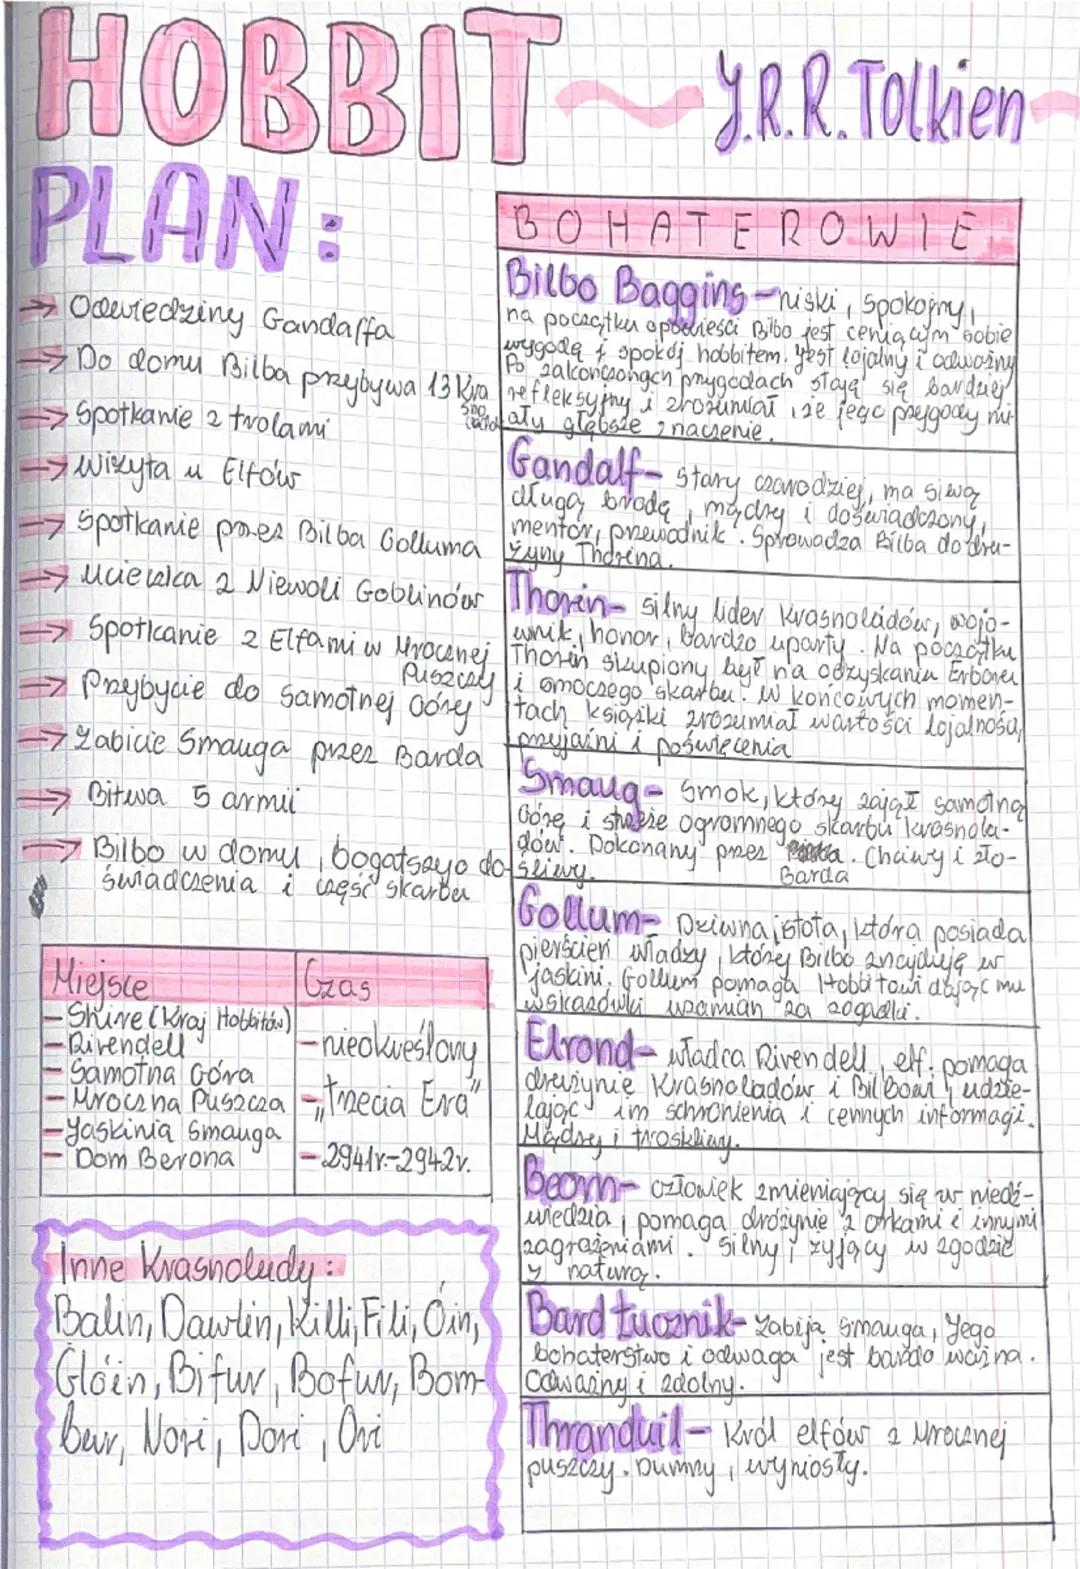 HOBBIT ~ J.R.R. Tolkien
PLAN:
→ Odwiedziny Gandalfa
→ Do domu Bilba przybywa 13 Kra
sno
ludów
→ Spotkanie z trolami
→ Wizyta u Elfów
→ Spotkanie przez Bilba Golluma
→ Ucieczka z Niewoli Goblinów
→ Spotkanie z Elfami w Mrocznej
Puszczy
→ Przybycie do Samotnej Góry
→ Zabicie Smauga przez Barda
→ Bitwa 5 armii
→ Bilbo w domu, bogatszy o do-
świadczenia i część skarbu
Miejsce
- Shire (Kraj Hobbitów)
- Rivendell
- Samotna Góra
- Mroczna Puszcza
- Jaskinia Smauga
- Dom Berona
Czas
- nieokreślony
- „Trzecia Era"
- 2941r.-2942r.
Inne Krasnoludy:
Balin, Dawlin, Killi, Fili, Óin,
Glóin, Bifur, Bofur, Bom-
bur, Nori, Dori, Ori
BOHATEROWIE
Bilbo Baggins - niski, spokojny,
na początku opowieści Bilbo jest ceniącym sobie
wygodę i spokój hobbitem. Jest lojalny i odważny
Po zakończonych przygodach stają się bardziej
refleksyjny i zrozumiał, że jego przygody mi-
ały głębsze znaczenie.
Gandalf - stary czarodziej, ma siwą
długą brodę, mądry i doświadczony,
mentor, przewodnik. Sprowadza Bilba do dru-
żyny Thorina.
Thorin - silny lider Krasnoludów, wojo-
wnik, honor, bardzo uparty. Na początku
Thorin skupiony był na odzyskaniu Erboru
i smoczego skarbu. W końcowych momen-
tach książki zrozumiał wartości lojalności,
przyjaźni i poświęcenia
Smaug - Smok, który zajął samotną
Górę i strzeże ogromnego skarbu krasnolu-
dów. Pokonany przez Barda. Chciwy i zło-
śliwy.
Gollum - Dziwna istota, która posiada
pierścień władzy, której Bilbo znajduję w
jaskini. Gollum pomaga Hobbitowi dając mu
wskazówki wzamian za zagadki.
Elrond - władca Rivendell, elf. pomaga
drużynie Krasnoludów i Bilbowi, udzie-
lając im schronienia i cennych informagi.
Mądry i troskliwy.
Beorn - człowiek zmieniający się w niedź-
wiedzia, pomaga drożynie z orkami i innymi
zagrażeniami. Silny, żyjący w zgodzie
z naturą.
Bard Łucznik - Zabija Smauga, Jego
bohaterstwo i odwaga jest bardo ważna.
Odważny i zdolny.
Thranduil - Król elfów z Mrocznej
puszczy. Dumny, wyniosły.